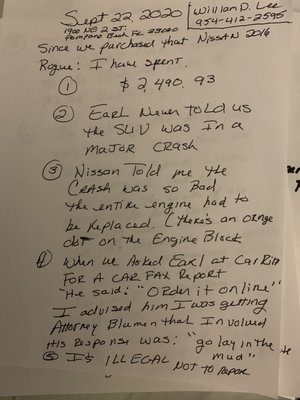 Sept 22, 2020
William D. Lee
954-412-2595
1900 NE 2 ST.
Pompano Bach Fla. 33060
Since we purchased that NISSAN 2016
Rogue: I have spent.
① $2,490.93
② EARL Never TOLD US
the SUV WAS IN a
MAJOR CRASH
③ NISSAN TOLD me the
CRASH was so Bad
the entire engine had to
be Replaced. (there's an orange
dot on the Engine Block
④ when we Asked Earl at CarRite
FOR A CAR FAX Report
"He said: "Order it online"
I advised him I was getting
Attorney Blumenthal Involved
His Response was: "go lay in the
mud"
⑤ It's ILLEGAL NOT TO Repor